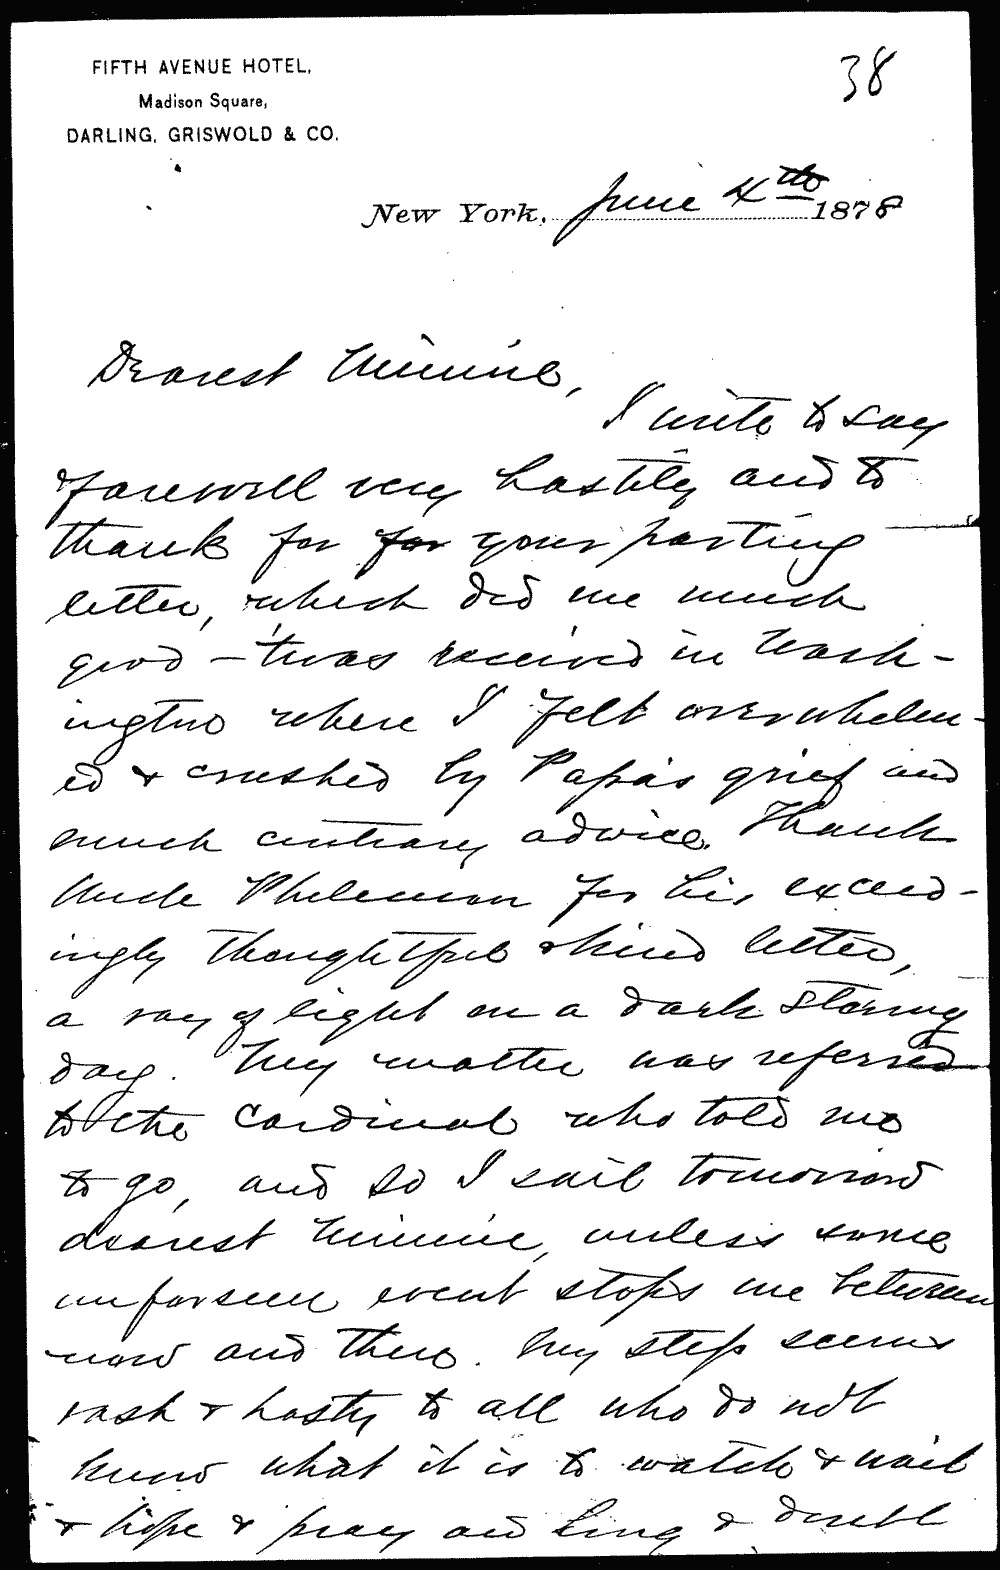 FIFTH AVENUE HOTEL,
Madison Square,
DARLING, GRISWOLD & CO.
38
New York, June 4th 1878
Dearest Minnie,
I write to say
farewell very hastily and to
thank for for your parting
letter, which did me much
good – 'twas received in Wash-
ington where I felt overwhelm-
ed & crushed by Papa's grief and
much contrary advice. Thank
Uncle Philemon for his exceed-
ingly thoughtful & kind letter,
a ray of light on a dark stormy
day. My matter was referred
to the Cardinal who told me
to go, and so I sail tomorrow
dearest Minnie, unless some
unforseen event stops me between
now and then. My step seems
rash & hasty to all who do not
know what it is to watch & wait
& hope & pray and long & doubt